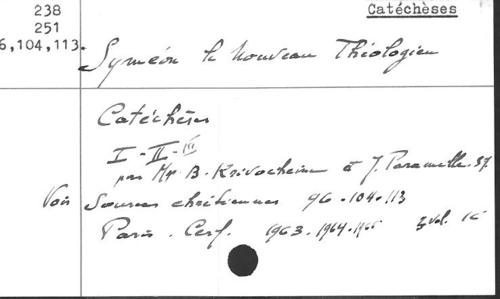 238
Catéchèses
251
6,104,113.
Syméon le Nouveau Théologien
Catéchèses
I - II - III
par Mgr B. Krivocheine & J. Paramelle. SJ
Voir Sources chrétiennes 96 . 104 . 113
Paris . Cerf. 1963 . 1964 . 1965 3 vol. 16